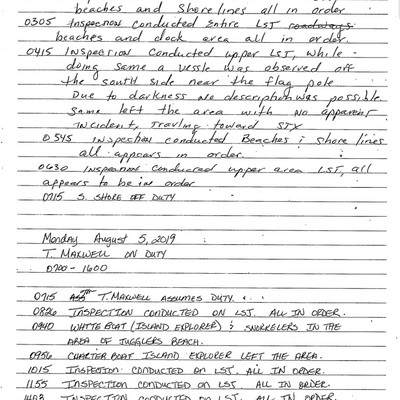 beaches and shore lines all in order
0305 Inspection Conducted Entire LSJ roadways
beaches and dock area all in order.
0415 Inspection Conducted upper LSJ, while
doing same a vessle was observed off
the south side near the flag pole
Due to darkness no description was possible.
Same left the area with no apparent
incident, Travling toward STX
0545 inspection conducted Beaches i shore lines
all appears in order.
0630 Inspection Conducted upper area LSJ, all
appears to be in order
0715 S. SHORE OFF DUTY
Monday August 5, 2019
T. MAXWELL ON DUTY
0700 - 1600
0715 T. MAXWELL ASSUMES DUTY.
INSPECTION CONDUCTED ON LSJ. ALL IN ORDER.
0940 WHITE BOAT (ISLAND EXPLORER) & SNORKELERS IN THE
AREA OF JUGGLERS BEACH.
0956 CHARTER BOAT ISLAND EXPLORER LEFT THE AREA.
1015 INSPECTION CONDUCTED ON LSJ. ALL IN ORDER.
1155 INSPECTION CONDUCTED ON LSJ. ALL IN ORDER.
INSPECTION CONDUCTED ON LSJ. ALL IN ORDER.